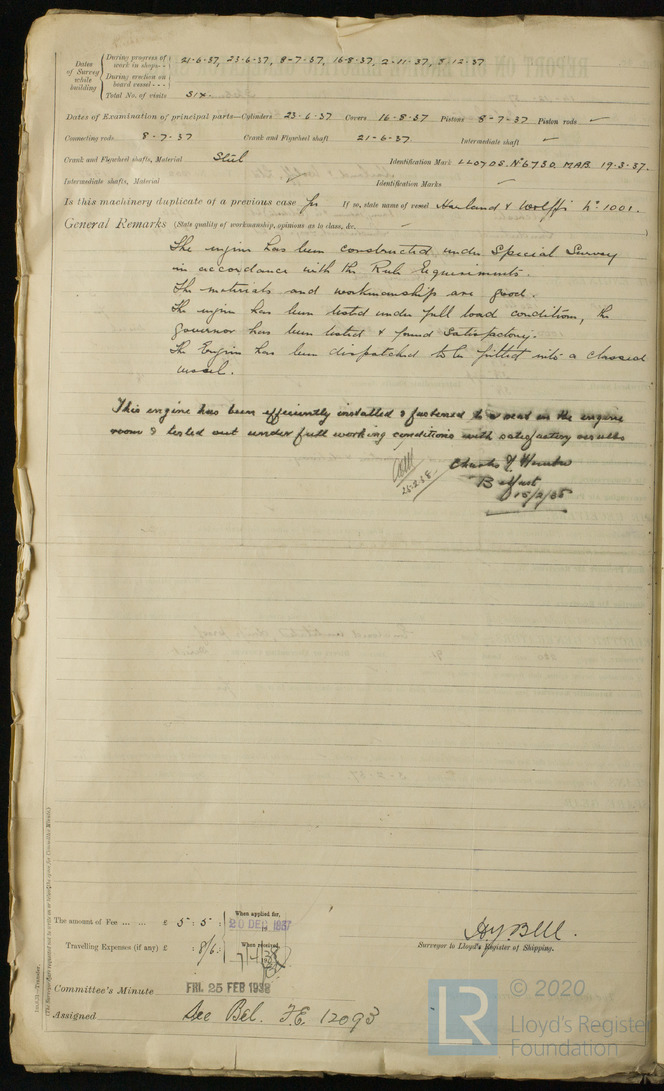 Dates of Survey while building
During progress of work in shops - - 21-6-37, 23-6-37, 8-7-37, 16-8-37, 2-11-37, 8-12-37
During erection on board vessel - - -
Total No. of visits Six.
Dates of Examination of principal parts—Cylinders 23-6-37 Covers 16-8-37 Pistons 8-7-37 Piston rods ~
Connecting rods 8-7-37 Crank and Flywheel shaft 21-6-37. Intermediate shaft ~
Crank and Flywheel shafts, Material Steel Identification Mark LLOYDS. No 6730. MAB. 19-3-37.
Intermediate shafts, Material Identification Marks ~
Is this machinery duplicate of a previous case Yes If so, state name of vessel Harland & Wolff's No. 1001.
General Remarks (State quality of workmanship, opinions as to class, &c. ~
The engine has been constructed under Special Survey
in accordance with the Rule Requirements.
The materials and workmanship are good.
The engine has been tested under full load conditions, the
governor has been tested & found Satisfactory.
The Engine has been dispatched to be fitted into a classed
vessel.
This engine has been efficiently installed & fastened to a seat in the engine
room & tested out under full working conditions with satisfactory results
25-2-38
Charles
Belfast
15/2/38
The amount of Fee ... ... £ 5 : 5 :
When applied for,
20 DEC 1937
Travelling Expenses (if any) £ : 8/6 :
When received,
7/4/38
H.J. Bell.
Surveyor to Lloyd's Register of Shipping.
Committee's Minute FRI. 25 FEB 1938
Assigned See Bel. F.E. 12093
LR © 2020
Lloyd's Register
Foundation